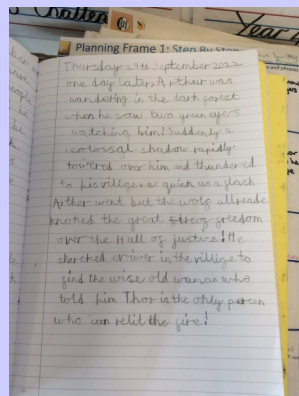 Year 4
Planning Frame 1: Step By Step
Thursday 29th September 2022
one day later Arthur was
wandering in the dark forest
when he saw two green eyes
watching him! Suddenly a
colossal shadow rapidly
towered over him and thundered
to his village. as quick as a flash
Arthur went but the wolf allreade
knoked the great freedom
over the Hall of justice! He
cherked in the village to
find the wise old woman who
told him Thor is the only percen
who can relit the fire!